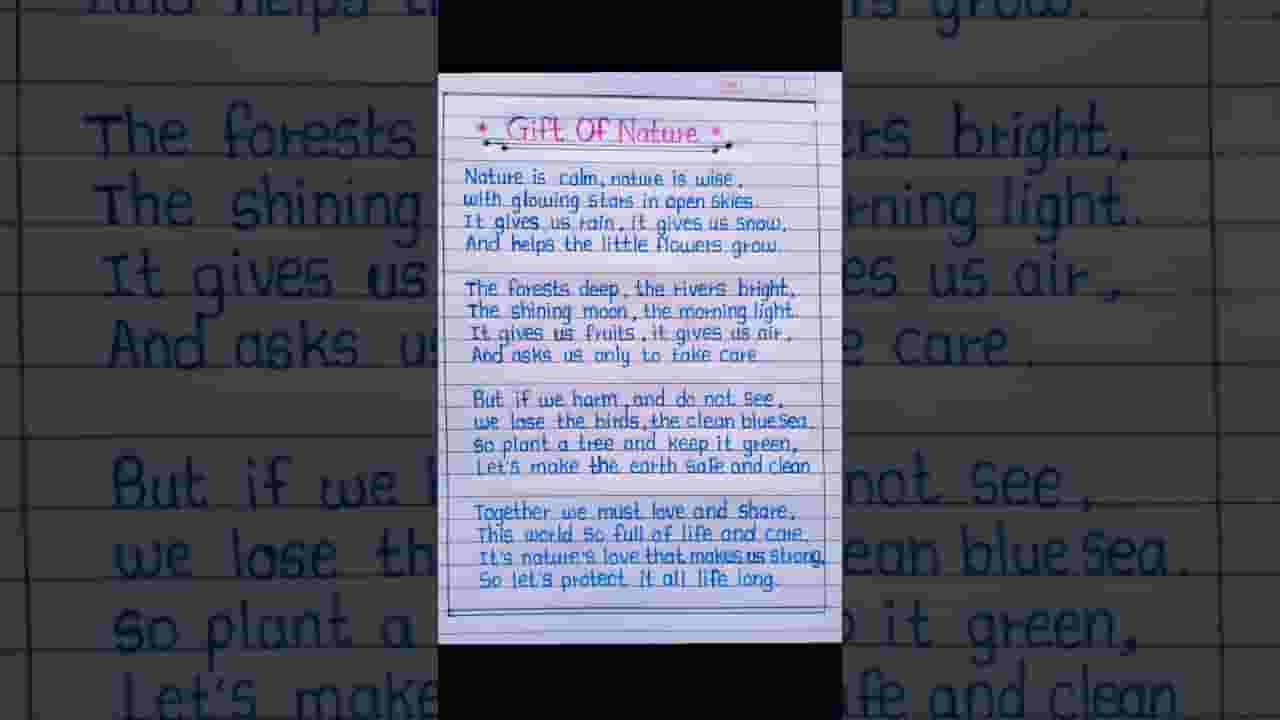 Gift Of Nature
Nature is calm, nature is wise,
with glowing stars in open skies.
It gives us rain, it gives us snow,
And helps the little flowers grow.
The forests deep, the rivers bright,
The shining moon, the morning light.
It gives us fruits, it gives us air,
And asks us only to take care.
But if we harm, and do not see,
we lose the birds, the clean blue sea.
So plant a tree and keep it green,
Let's make the earth safe and clean
Together we must love and share,
This world so full of life and care.
It's nature's love that makes us strong,
So let's protect it all life long.